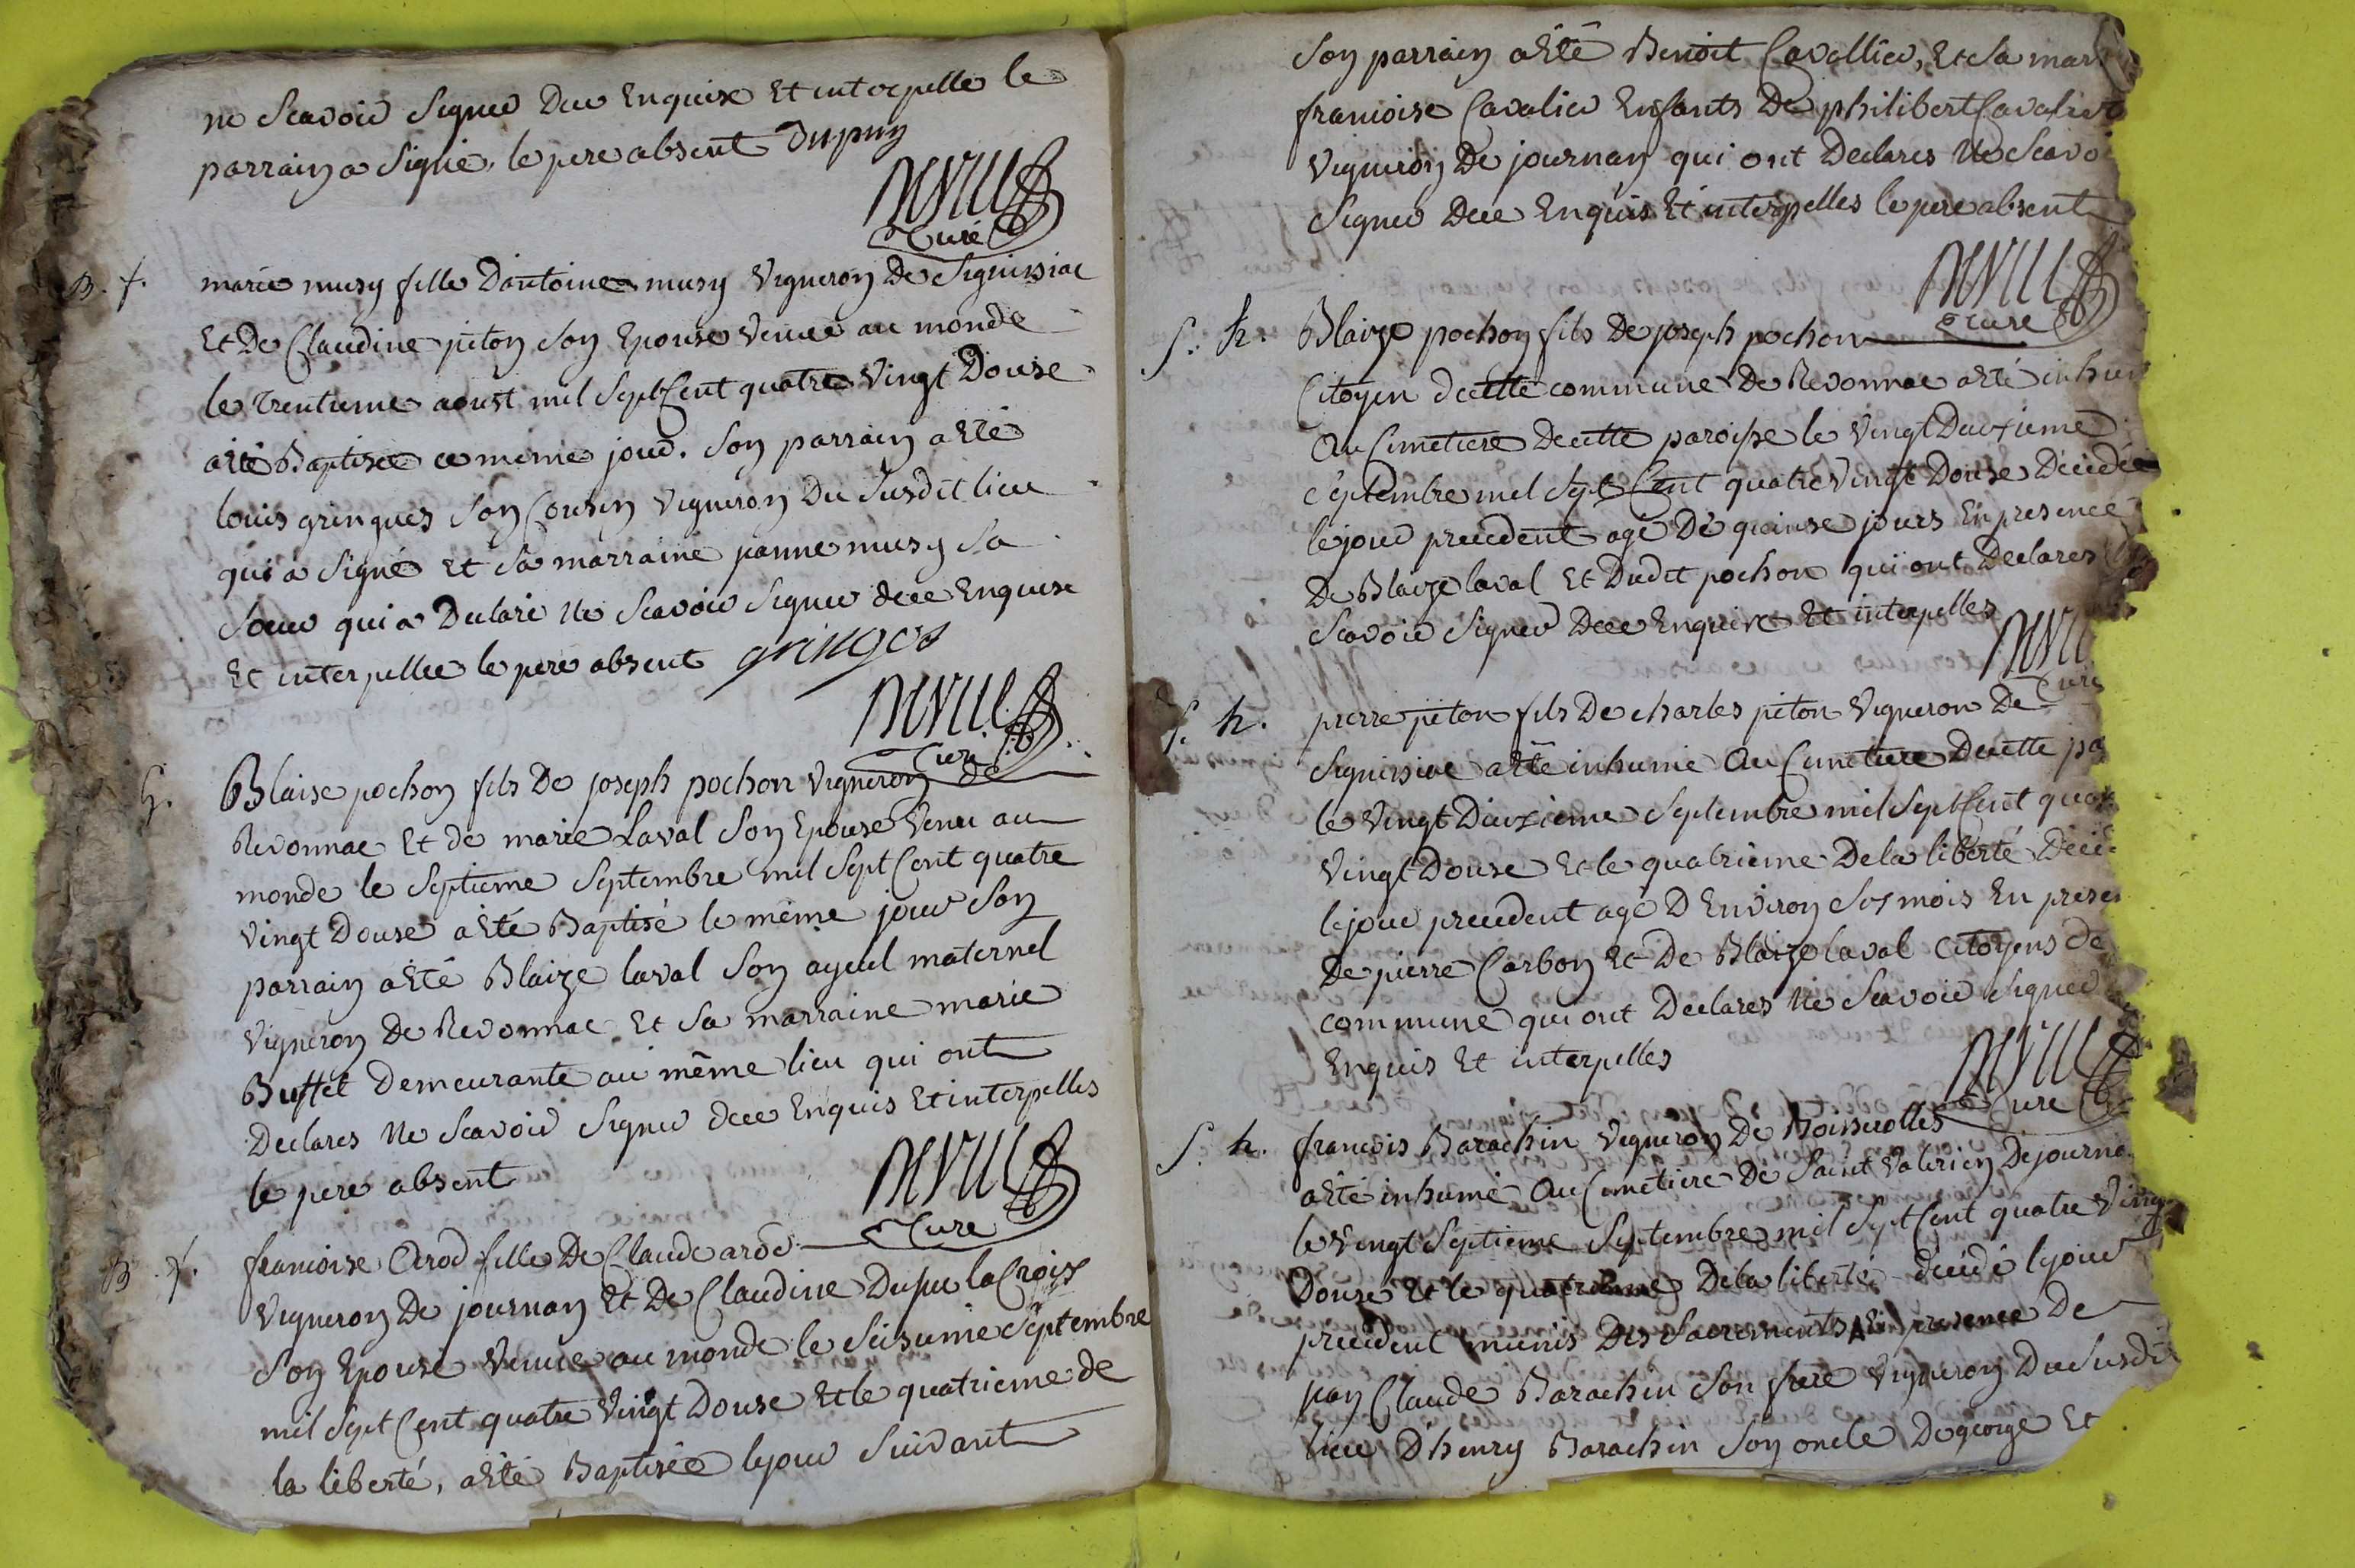 ne Scavoir Signer Dece Enquise Et interpelle le
parrain a Signé, le pere absent Dupuy
Curé
B. f.
marie musy fille D'antoine musy Vigneron De Signissiac
Et De Claudine piton Son Epouse Venue au monde
le Trentieme aoust mil Sept Cent quatre Vingt Douse
a été Baptisée ce même jour. Son parrain a Eté
louis gringues Son Cousin Vigneron Du Susdit lieu
qui a Signé Et Sa marraine jeanne musy Sa
Soeur qui a Declaré Ne Scavoir Signer dece Enquise
Et interpellee le pere absent gringes
Curé
h.
Blaise pochon fils De joseph pochon Vigneron de
Revonnac Et de marie Laval Son Epouse Venu au
monde le Septieme Septembre mil Sept Cent quatre
Vingt Douse a Eté Baptisé le même jour Son
parrain a Eté Blaize laval Son ayeul maternel
Vigneron De Revonnac Et Sa marraine marie
Buffet Demeurante au même lieu qui ont
Declarés Ne Scavoir Signer dece Enquis Et interpelles
le pere absent
Cure
B. f.
francoise Arod fille De Claude arod
Vigneron De journan Et De Claudine Dupu la Croix
Son Epouse Venue au monde le Seisieme Septembre
mil Sept Cent quatre Vingt Douse Et le quatrieme de
la liberté, a Eté Baptisée le jour Suivant
Son parrain a Eté Benoit Cavallier, Et Sa mar
francoise Cavalier Enfants De philibert Cavalier
Vigneron De journan qui ont Declarés Ne Scavoi
Signer Dece Enquis Et interpelles le pere absent
Cure
S. h.
Blaize pochon fils De joseph pochon
Citoyen de cette commune De Revonnac a Eté inhum
Au Cimetiere De cette paroisse le Vingt Deuxieme
Septembre mil Sept Cent quatre Vingt Douse Décédé
le jour precedent agé De quinse jours En presence
De Blaize laval Et Dudit pochon qui ont Declarés
Scavoir Signer Dece Enquise Et interpelles
Curé
S. h.
pierre piton fils De charles piton Vigneron De
Signissiac a Eté inhumé Au Cimetiere De cette pa
le Vingt Deuxieme Septembre mil Sept Cent quatr
Vingt Douse Et le quatrieme De la liberté Décéd
le jour precedent agé D'Environ Six mois En prese
De pierre Carbon Et De Blaize laval Citoyens de
commune qui ont Declarés Ne Scavoir Signer
Enquis Et interpelles
Cure
S. h.
francois Barachin Vigneron De
a Eté inhumé Au Cimetiere De Saint Valerien De journa
le Vingt Septieme Septembre mil Sept Cent quatre Ving
Douse Et le quatrieme De la liberté décédé le jour
precedent munis Des Sacrements En presence De
jean Claude Barachin Son frere Vigneron Du Susdit
lieu D'henry Barachin Son oncle De george Et